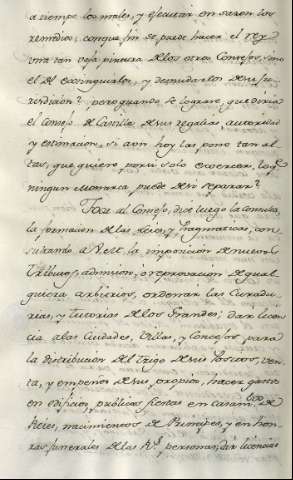 a tiempo los males, y ejecutar en sazon los
remedios: conque fin se puede hacer al rey
una tan vaja pintura de los otros Consejos, sino
el de extinguirlos, y desnudarlos de su ju-
risdiccion? pero quando se lograse, que diria
el Consejo de Castilla de sus regalias, autoridad
y estimacion, si aun hoy las pone tan al-
tas, que quiere por si solo exercer lo q.e
ningun Monarca puede de si separar?
Toca al Consejo, dice luego la consulta,
la formacion de las leies, y Pragmaticas, con-
sultando a V. M. la imposicion de nuevos
Tributos, admision, o reprovacion de qual
quiera arbitrios, ordenar las Curadu-
rias, y Tutorias de los Grandes; dar licen
cia a las Ciudades, Villas, y Concejos para
la distribucion del trigo de sus Positos, ven-
ta, y empeños de sus propios, hacer gastos
en edificios, publicas fiestas en casam.tos de
Reies, nacimientos de Principes, y en hon-
ras funerales de las R.s personas, dar licencias